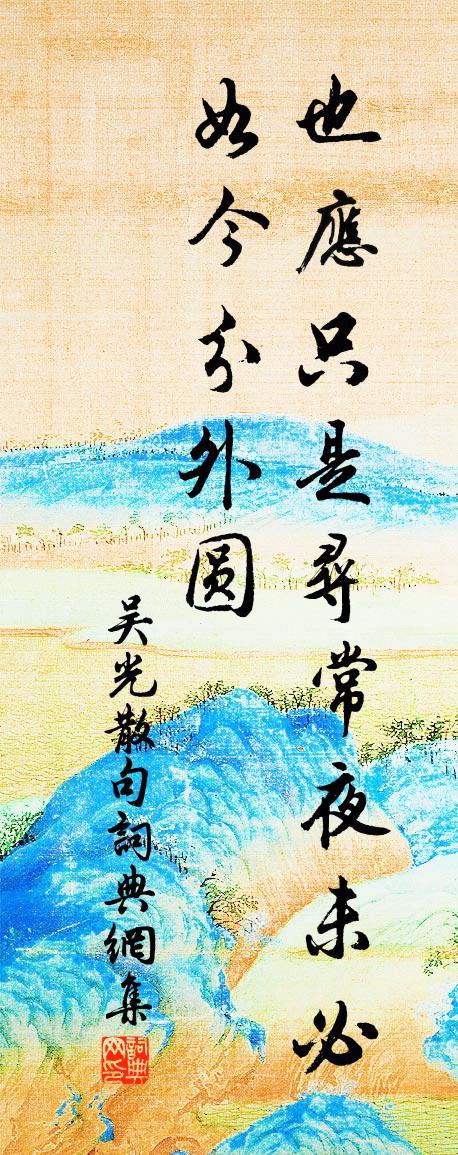 也應只是尋常夜未必
如今分外圓
吴光散句詞典網集
詞典網印